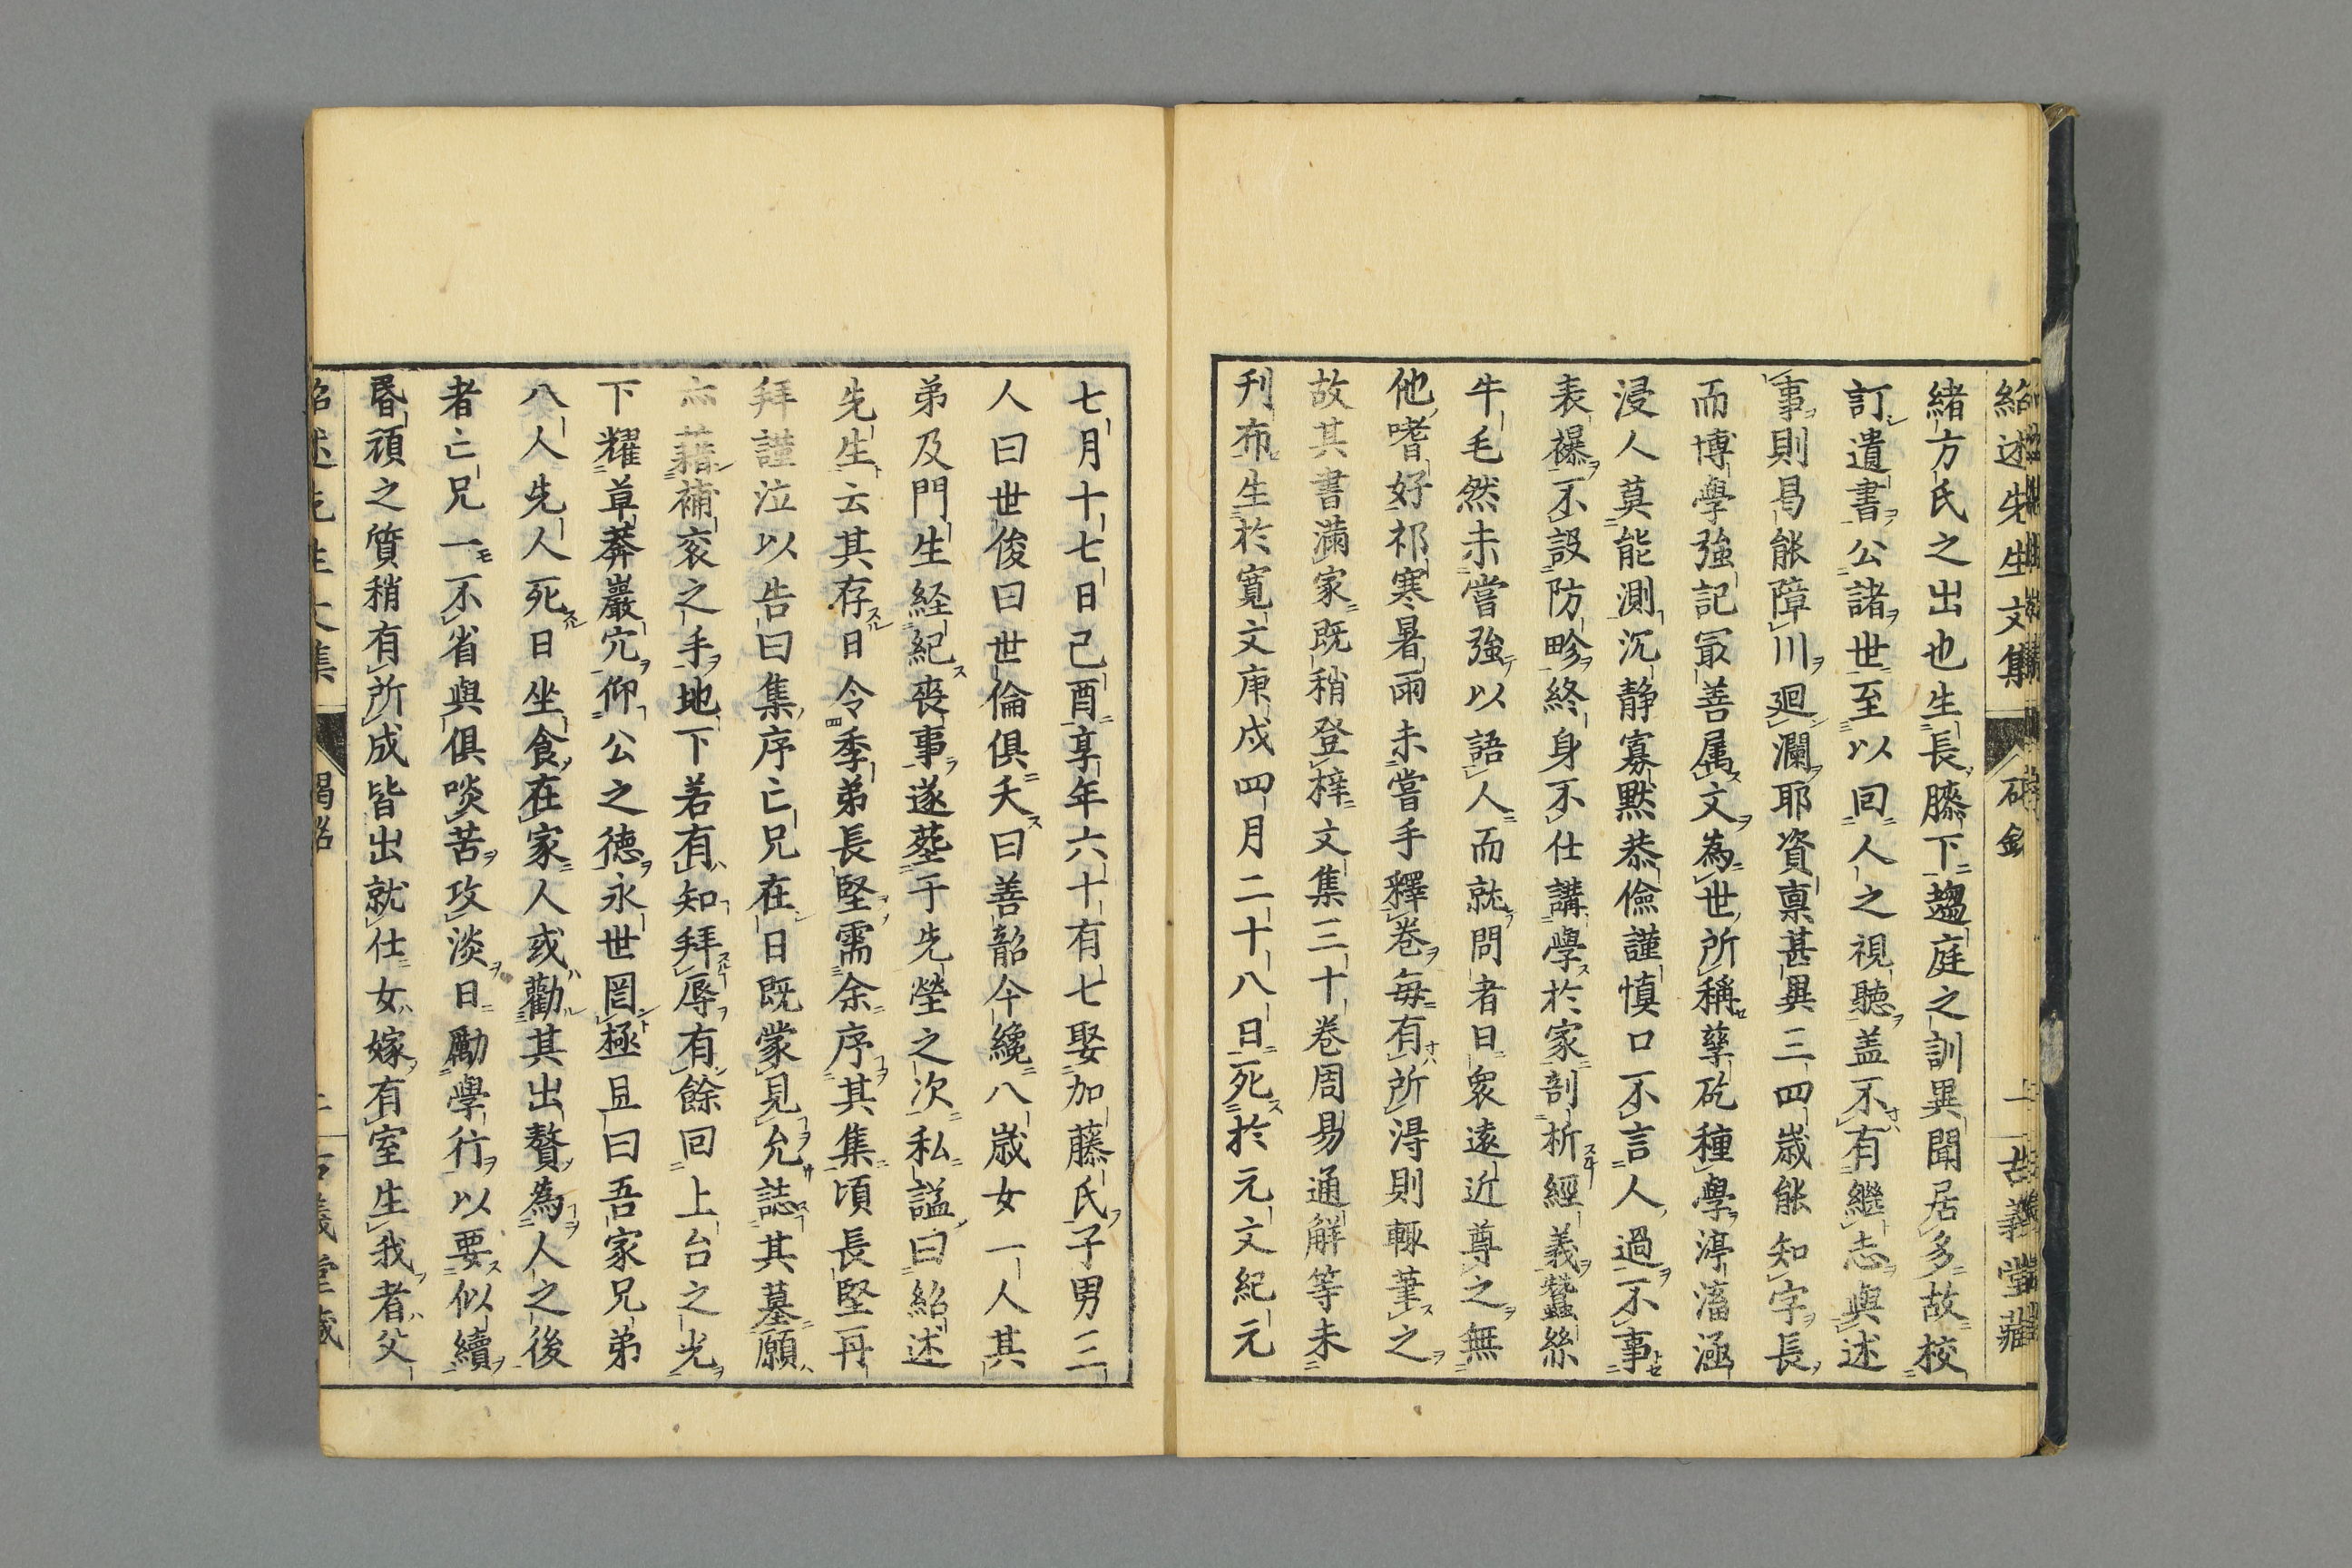 紹述先生文集 碣銘 二 古義堂藏
緒方氏之出也生長膝下趨庭之訓異聞居多故校
訂遺書公諸世至以囘人之視聽盖不有繼志與述
事則曷能障川廻瀾耶資稟甚異三四歳能知字長
而博學強記冣善属文為世所稱孳矻種學渟滀涵
浸人莫能測沉静寡默恭儉謹慎口不言人過不事
表襮不設防畛終身不仕講學於家剖析經義蠶絲
牛毛然未嘗強以語人而就問者日衆遠近尊之無
他嗜好祁寒暑雨未嘗手釋卷毎有所淂則輙筆之
故其書滿家既稍登梓文集三十卷周易通解等未
刊布生於寛文庚戌四月二十八日死於元文紀元
七月十七日己酉享年六十有七娶加藤氏子男三
人曰世俊曰世倫俱夭曰善韶今纔八歳女一人其
弟及門生経紀喪事遂塟于先塋之次私諡曰紹述
先生云其存日令季弟長堅需余序其集頃長堅再
拜謹泣以告曰集序亡兄在日既蒙見允誌其墓願
亦藉補衮之手地下若有知拜辱有餘回上台之光
下耀草莽巖穴仰公之德永世罔極且曰吾家兄弟
八人先人死日坐食在家人或勸其出贅為人之後
者亡兄一不省與俱啖苦攻淡日勵學行以要似續
昏頑之質稍有所成皆出就仕女嫁有室生我者父
紹述先生文集 碣銘 古義堂藏